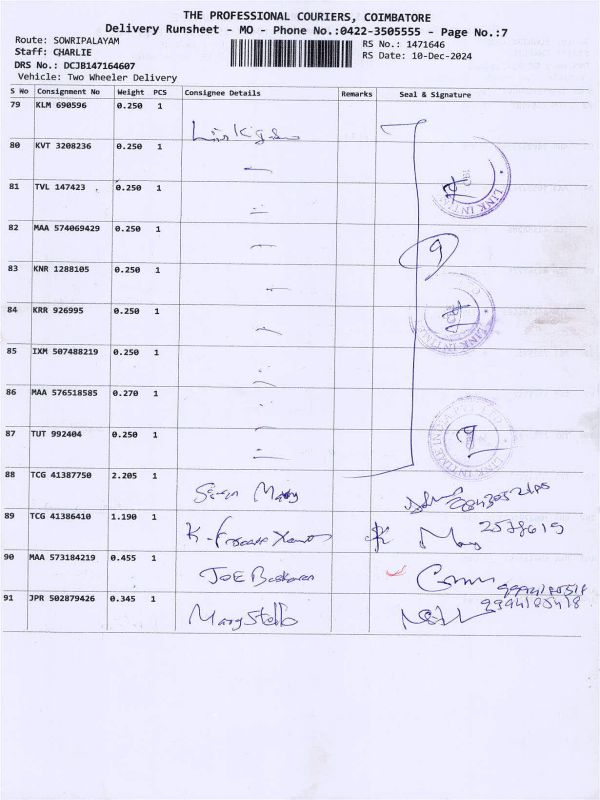 THE PROFESSIONAL COURIERS, COIMBATORE
Delivery Runsheet - MO - Phone No.:0422-3505555 - Page No.:7
Route: SOWRIPALAYAM
Staff: CHARLIE
DRS No.: DCJB147164607
Vehicle: Two Wheeler Delivery
RS No.: 1471646
RS Date: 10-Dec-2024
S No Consignment No Weight PCS Consignee Details Remarks Seal & Signature
79 KLM 690596 0.250 1
80 KVT 3208236 0.250 1
81 TVL 147423 0.250 1
82 MAA 574069429 0.250 1
83 KNR 1288105 0.250 1
84 KRR 926995 0.250 1
85 IXM 507488219 0.250 1
86 MAA 576518585 0.270 1
87 TUT 992404 0.250 1
88 TCG 41387750 2.205 1 Mary
89 TCG 41386410 1.190 1 K. 2578619
90 MAA 573184219 0.455 1 JOE Baskaran
91 JPR 502879426 0.345 1 Mary Stella 9994185418
9
LINK INTIME
LINK INTIME
LINK INTIME INDIA PVT LTD